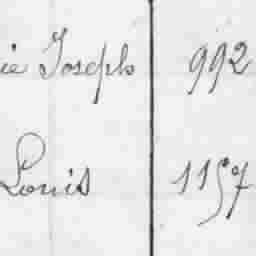 ie Joseph 992
Louis 1157